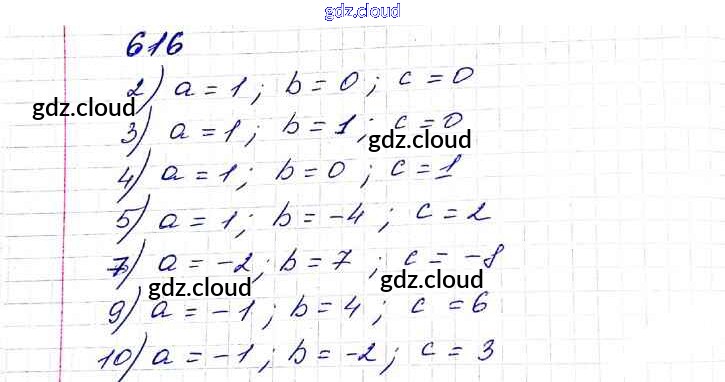 gdz.cloud
616
2) a = 1 ; b = 0 ; c = 0
gdz.cloud
3) a = 1 ; b = 1 ; c = 0
gdz.cloud
4) a = 1 ; b = 0 ; c = 1
5) a = 1 ; b = -4 ; c = 2
7) a = -2 ; b = 7 ; c = -8
gdz.cloud gdz.cloud
9) a = -1 ; b = 4 ; c = 6
10) a = -1 ; b = -2 ; c = 3